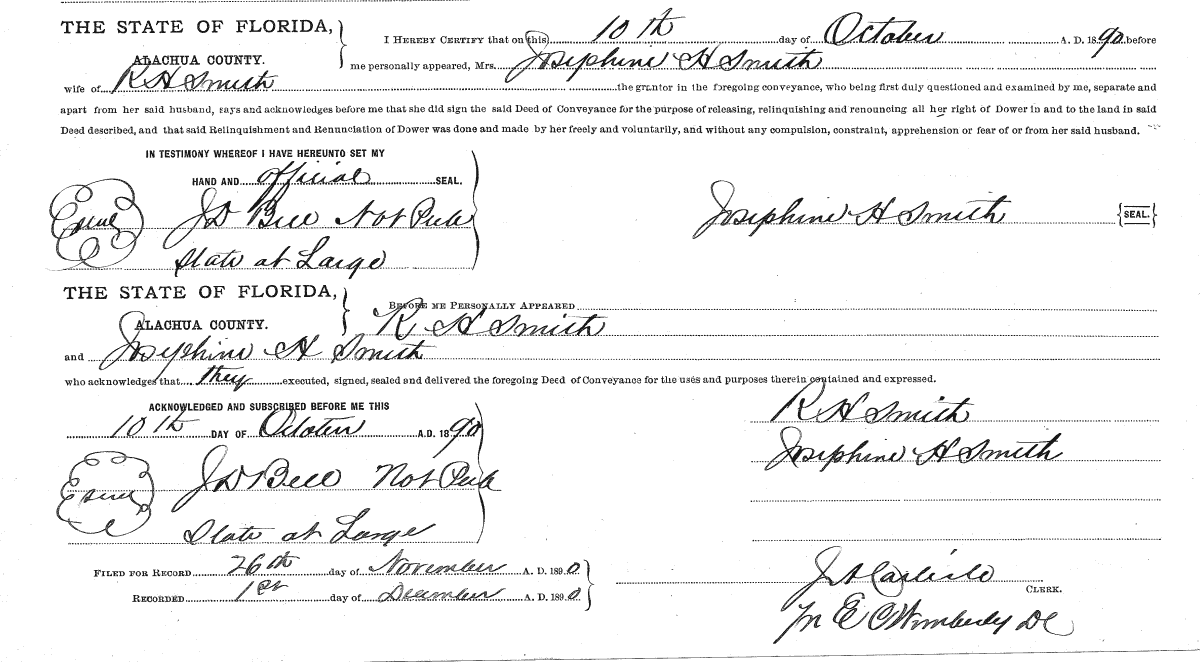 THE STATE OF FLORIDA,
ALACHUA COUNTY.
I HEREBY CERTIFY that on this 10th day of October A. D. 1890 before
me personally appeared, Mrs. Josephine H Smith
wife of R H Smith the grantor in the foregoing conveyance, who being first duly questioned and examined by me, separate and
apart from her said husband, says and acknowledges before me that she did sign the said Deed of Conveyance for the purpose of releasing, relinquishing and renouncing all her right of Dower in and to the land in said
Deed described, and that said Relinquishment and Renunciation of Dower was done and made by her freely and voluntarily, and without any compulsion, constraint, apprehension or fear of or from her said husband.
IN TESTIMONY WHEREOF I HAVE HEREUNTO SET MY
HAND AND official SEAL.
J D Bell Not Pub
State at Large
Josephine H Smith {SEAL.}
THE STATE OF FLORIDA,
ALACHUA COUNTY.
BEFORE ME PERSONALLY APPEARED
R H Smith
and Josephine H Smith
who acknowledges that they executed, signed, sealed and delivered the foregoing Deed of Conveyance for the uses and purposes therein contained and expressed.
ACKNOWLEDGED AND SUBSCRIBED BEFORE ME THIS
10th DAY OF October A.D. 1890
J D Bell Not Pub
State at Large
R H Smith
Josephine H Smith
FILED FOR RECORD 26th day of November A. D. 1890
RECORDED 1st day of December A. D. 1890
J A Carlisle
CLERK.
E C Wimberly DC